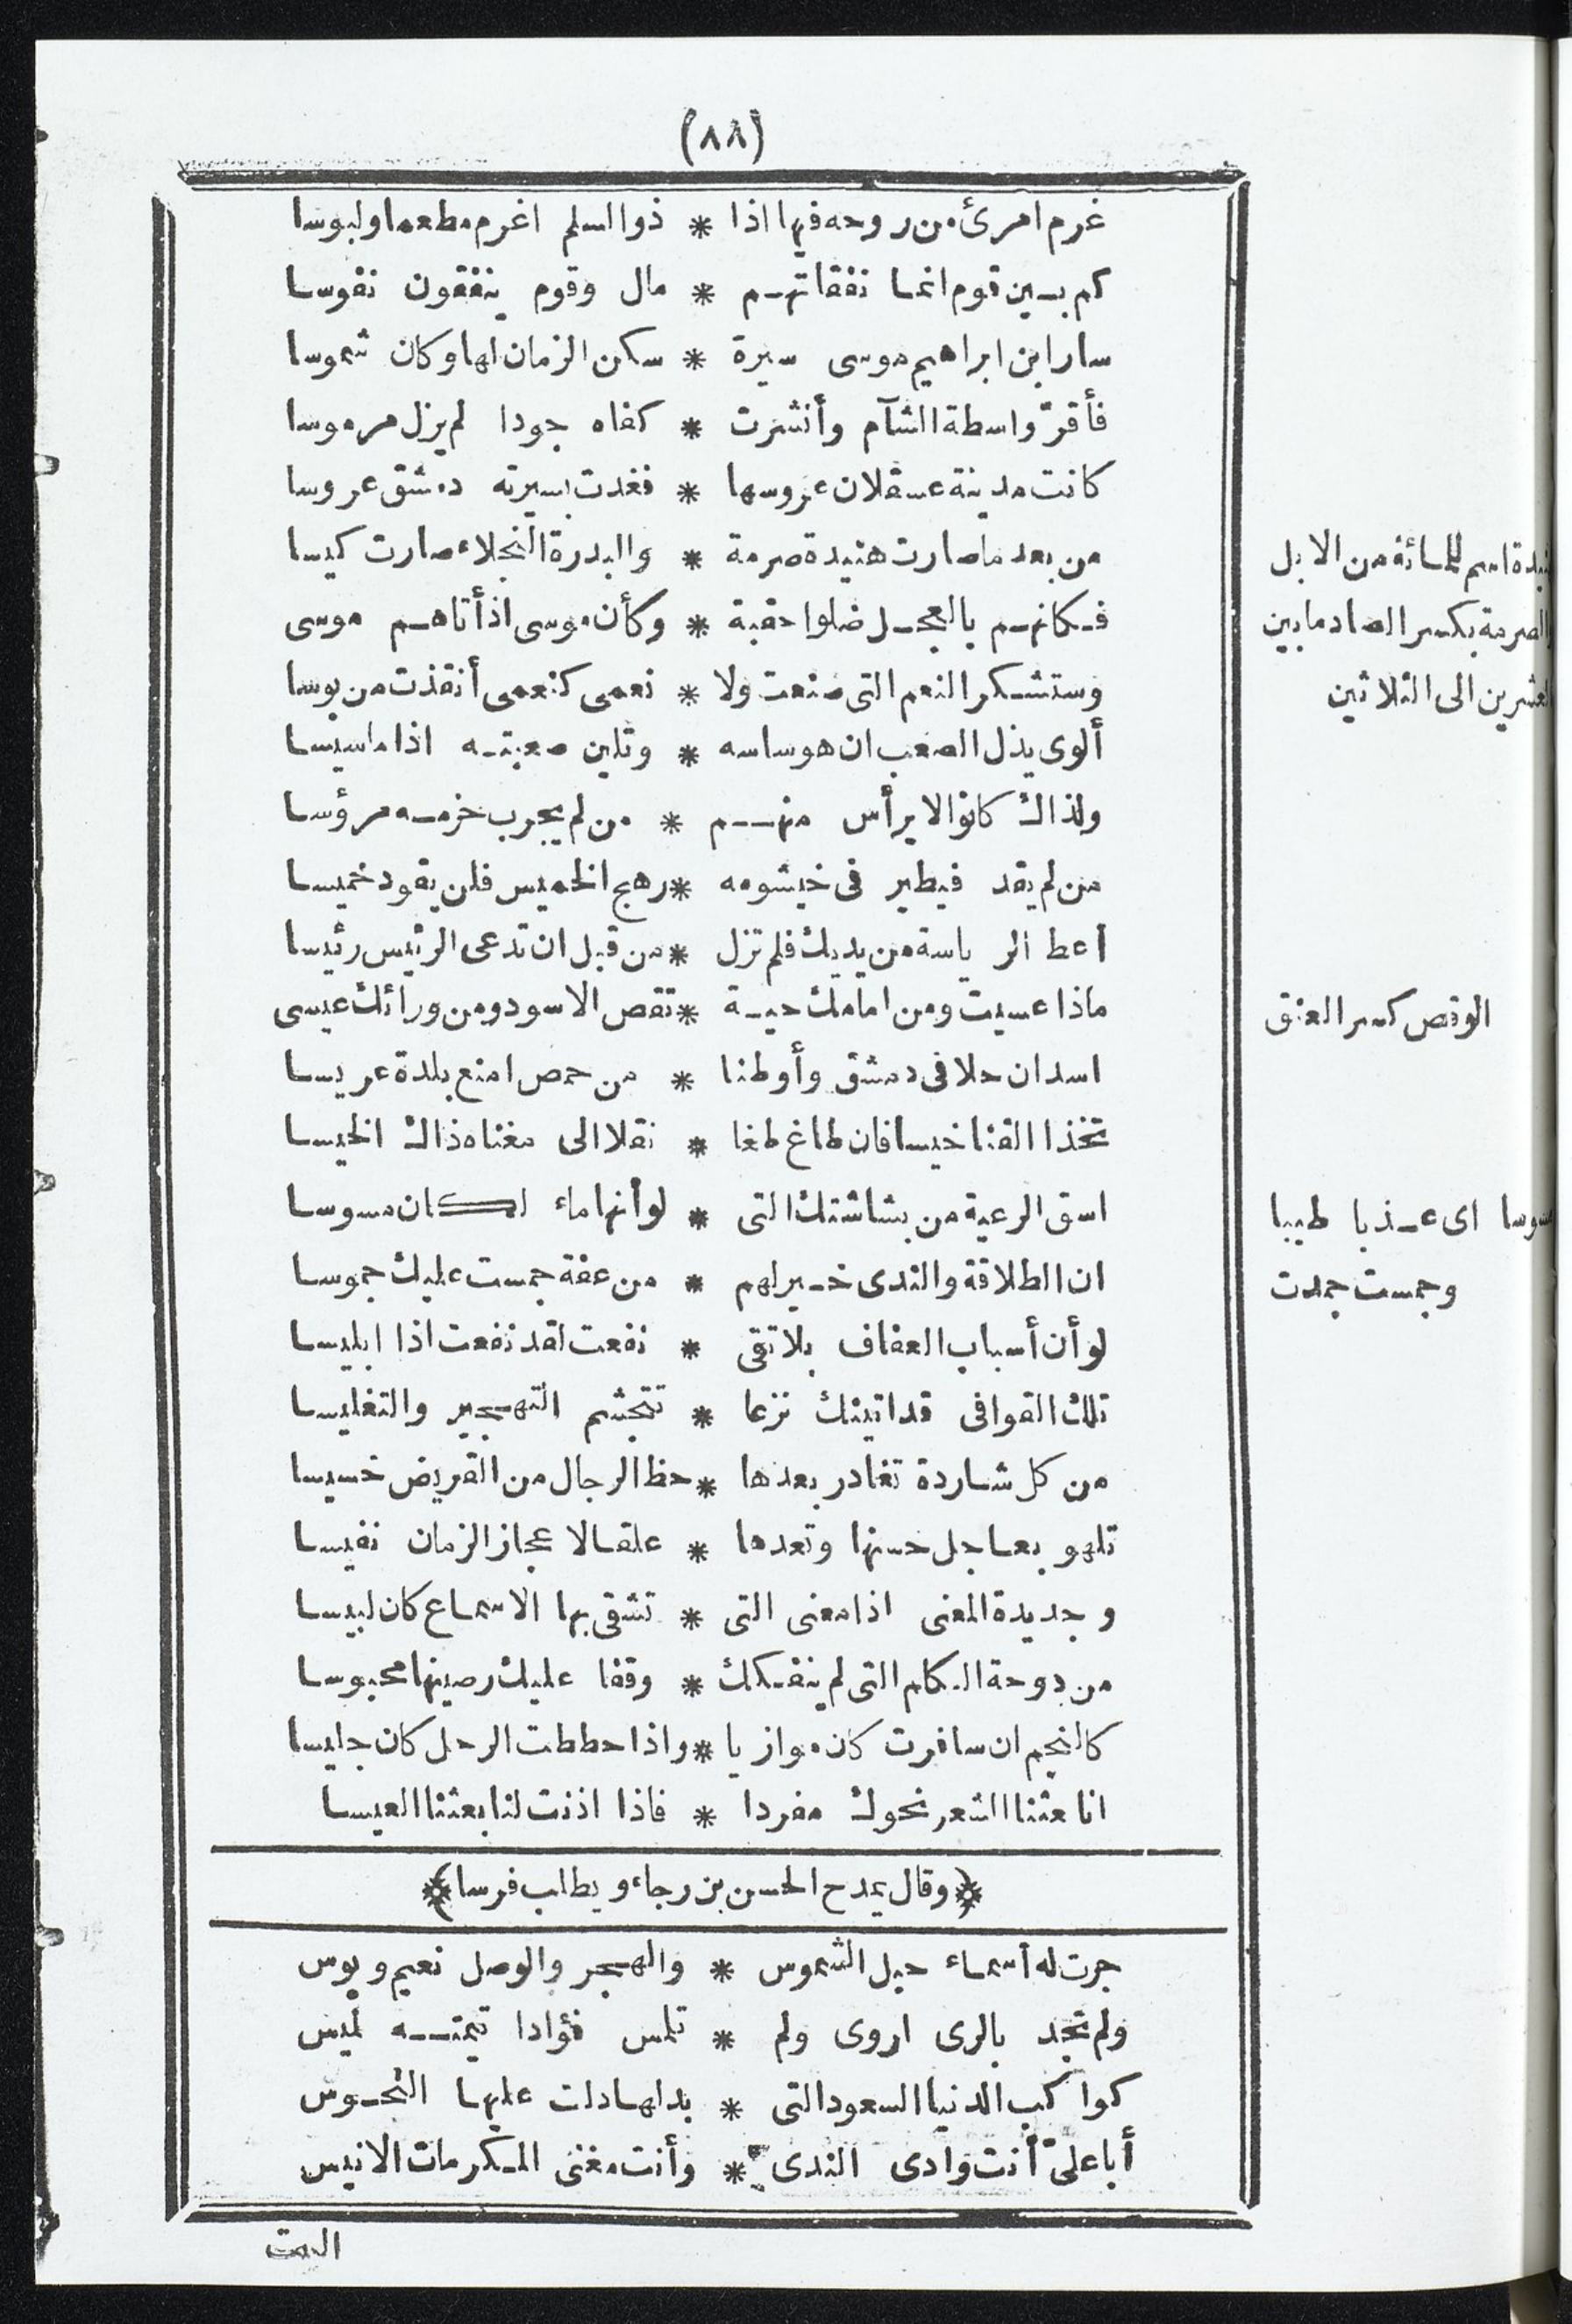 (٨٨)
غرم امرئ من روحه فيها اذا * ذو السلم اغرم مطعما ولبوسا
كم بين قوم انما نفقاتهم * مال وقوم ينفقون نفوسا
سار ابن ابراهيم موسى سيرة * سكن الزمان لها وكان شموسا
فأقرّ واسطة الشآم وأنشرت * كفاه جودا لم يزل مرموسا
كانت مدينة عسقلان عروسها * فغدت بسيرته دمشق عروسا
من بعد ما صارت هنيدة صرمة * والبدرة النجلاء صارت كيسا
هنيدة اسم للمائة من الابل
فكانهم بالعجل ضلوا حقبة * وكأن موسى اذ أتاهم موسى
والصرمة بكسر الصاد ما بين
وستشكر النعم التى صنعت ولا * نعمى كنعمى أنقذت من بوسا
العشرين الى الثلاثين
ألوى يذل الصعب ان هو ساسه * وتلين صعبته اذا ما سيسا
ولذاك كانوا لا يرأس منهم * من لم يجرب حزمه مرؤسا
من لم يقد فيطير فى خيشومه * رهج الخميس فلن يقود خميسا
أعط الرياسة من يديك فلم تزل * من قبل ان تدعى الرئيس رئيسا
ماذا عسيت ومن امامك حية * تقص الاسود ومن ورائك عيسى
الوقص كسر العنق
اسدان حلا فى دمشق وأوطنا * من حمص امنع بلدة عريسا
تخذا القنا خيسا فان طاغ طغا * نقلا الى مغناه ذاك الخيسا
اسق الرعية من بشاشتك التى * لو أنها ماء لكان مسوسا
مسوسا اى عذبا طيبا
ان الطلاقة والندى خير لهم * من عفة جمست عليك جموسا
وجمست جمدت
لو أن أسباب العفاف بلا تقى * نفعت لقد نفعت اذا ابليسا
تلك القوافى قد اتينك نزعا * تتجشم التهجير والتغليسا
من كل شاردة تغادر بعدها * حظ الرجال من القريض خسيسا
تلهو بعاجل حسنها وتعدها * علقا لاعجاز الزمان نفيسا
وجديدة المعنى اذا معنى التى * تشقى بها الاسماع كان لبيسا
من دوحة الكلم التى لم ينفكك * وقفا عليك رصينها محبوسا
كالنجم ان سافرت كان موازيا * واذا حططت الرحل كان جليسا
انا بعثنا الشعر نحوك مفردا * فاذا اذنت لنا بعثنا العيسا
﴿وقال يمدح الحسن بن رجاء ويطلب فرسا﴾
جرت له أسماء حبل الشموس * والهجر والوصل نعيم وبوس
ولم تجد بالرى اروى ولم * تلمس فؤادا تيمته لميس
كواكب الدنيا السعود التى * بدلها دلت عليها النحوس
أبا علىّ أنت وادى الندى * وأنت مغنى المكرمات الانيس
البيت